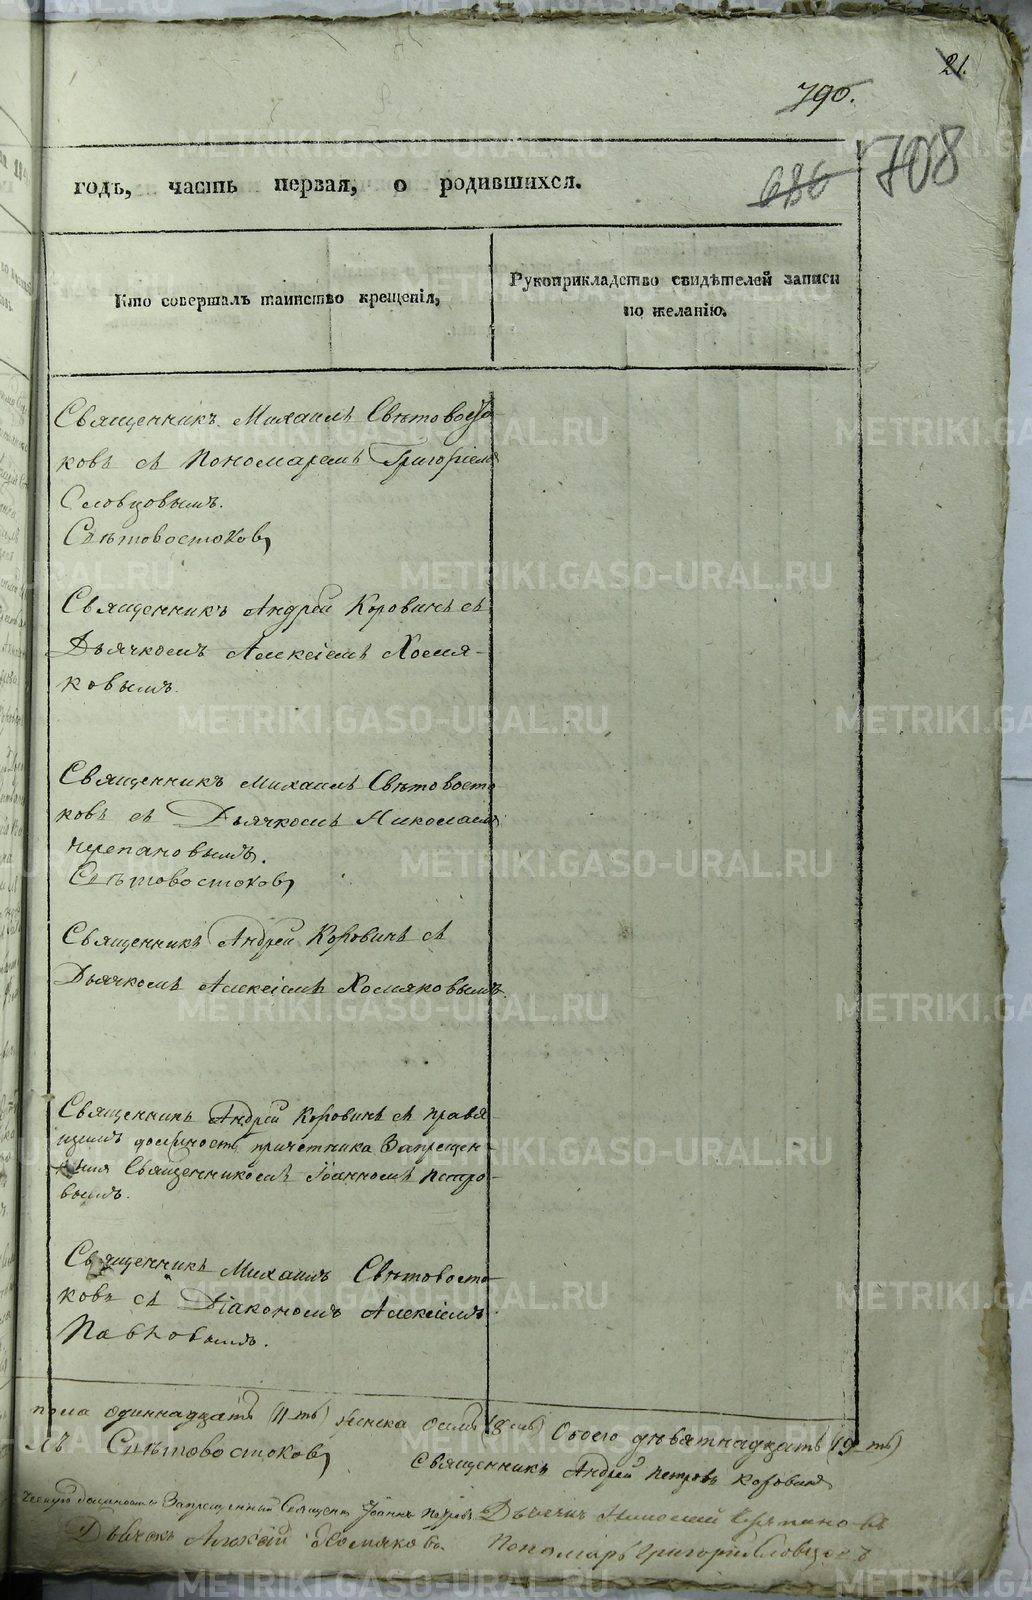 21.
790.
686
708
годъ, часть первая, о родившихся.
Кто совершалъ таинство крещенія,
Рукоприкладство свидѣтелей записи
по желанію.
Священникъ Михаилъ Свѣтовосто
ковъ съ Пономаремъ Григоріемъ
Словцовымъ.
Свѣтовостоковъ
Священникъ Андрей Коровинъ съ
Дьячкомъ Алексіемъ Хомя-
ковымъ.
Священникъ Михаилъ Свѣтовосто
ковъ съ Дьячкомъ Николаемъ
Черепановымъ.
Свѣтовостоковъ
Священникъ Андрей Коровинъ съ
Дьячкомъ Алексіемъ Хомяковымъ
Священникъ Андрей Коровинъ съ правя-
щимъ должность причетника Запрещен-
нымъ Священникомъ Іоанномъ Петро-
вымъ.
Священникъ Михаилъ Свѣтовосто
ковъ съ Діакономъ Алексіемъ
Павловымъ.
пола одиннадцать (11-ть) женска осмь (8-мь) Обоего девятнадцать (19-ть)
Свѣтовостоковъ
Священникъ Андрей Петровъ Коровинъ
должность Запрещенный Священникъ Іоаннъ Петровъ Дьячекъ Николай Черепановъ
Дьячокъ Алексій Хомяковъ Пономарь Григорій Словцовъ
METRIKI.GASO-URAL.RU